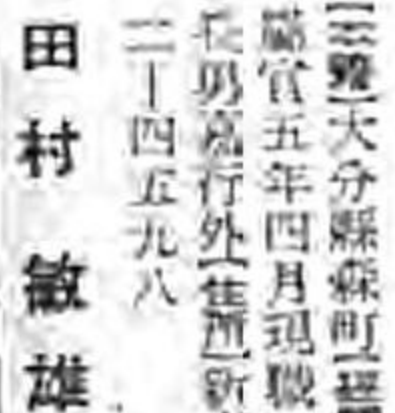 大分縣森町
官五年四月現職
長男亮行外【住所】新
二ー四五九八
田村敏雄